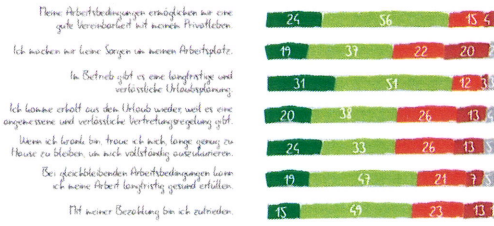 Meine Arbeitsbedingungen ermöglichen mir eine
gute Vereinbarkeit mit meinem Privatleben.
24 56 15 4
Ich mache mir keine Sorgen um meinen Arbeitsplatz.
19 37 22 20
Im Betrieb gibt es eine langfristige und
verlässliche Urlaubsplanung.
31 51 12 3
Ich komme erholt aus dem Urlaub wieder, weil es eine
angemessene und verlässliche Vertretungsregelung gibt.
20 38 26 13
Wenn ich krank bin, traue ich mich, lange genug zu
Hause zu bleiben, um mich vollständig auszukurieren.
24 33 26 13
Bei gleichbleibenden Arbeitsbedingungen kann
ich meine Arbeit langfristig gesund erfüllen.
19 47 21 7
Mit meiner Bezahlung bin ich zufrieden.
15 49 23 13